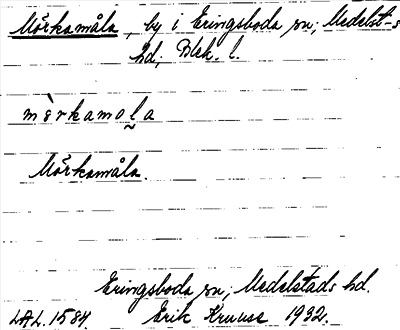 Mörkamåla, by i Eringsboda sn; Medelst-s
hd; Blek. l.
mèrkamoḽa
Mörkamåla.
Eringsboda sn; Medelstads hd.
LAL. 1584. Erik Kruuse 1932.